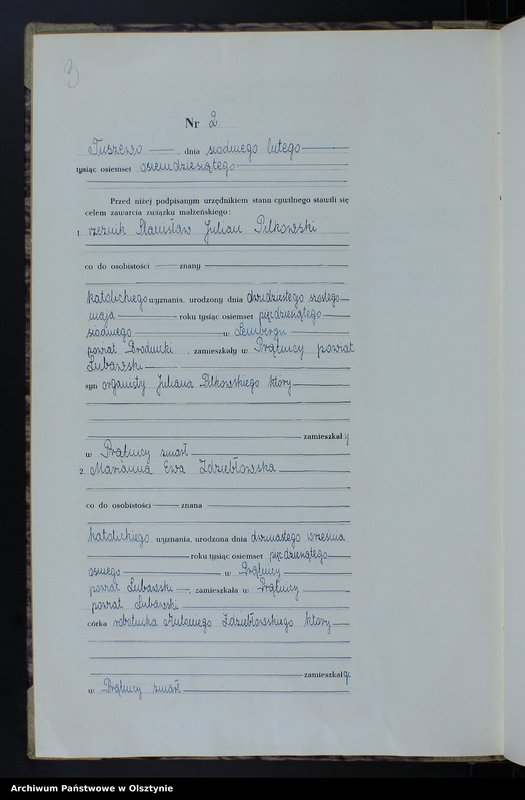 3
Nr 2
Tuszewo , dnia siódmego lutego
tysiąc osiemset osiemdziesiątego
Przed niżej podpisanym urzędnikiem stanu cywilnego stawili się
celem zawarcia związku małżeńskiego:
1. rzeźnik Stanisław Julian Pilkowski
co do osobistości znany
katolickiego wyznania, urodzony dnia dwudziestego szóstego
maja roku tysiąc osiemset pięćdziesiątego
siódmego w Lembergu
powiat Brodnicki , zamieszkały w Prątnicy powiat
Lubawski
syn organisty Juliana Pilkowskiego który
zamieszkały
w Prątnicy zmarł
2. Marianna Ewa Zdziebłowska
co do osobistości znana
katolickiego wyznania, urodzona dnia dwunastego września
roku tysiąc osiemset pięćdziesiątego
ósmego w Prątnicy
powiat Lubawski , zamieszkała w Prątnicy
powiat Lubawski
córka robotnika Antoniego Zdziebłowskiego który
zamieszkały
w Prątnicy zmarł
Archiwum Państwowe w Olsztynie